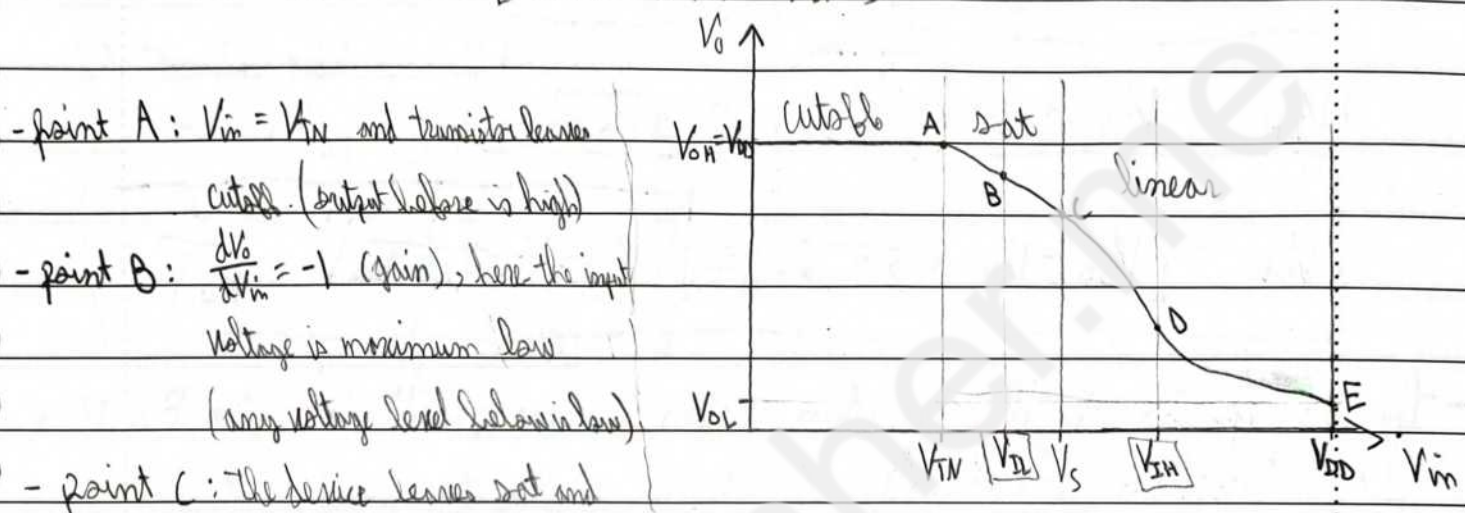 - point A : Vin = VTN and transistor leaves
cutoff. (output before is high)
- point B : dVo/dVin = -1 (gain), here the input
voltage is maximum low
(any voltage level below is low)
- point C : The device leaves sat and
Vo
VOH=VDD
cutoff A sat
B
C
linear
D
VOL
E
VTN VIL VS VIH VDD Vin
her.me